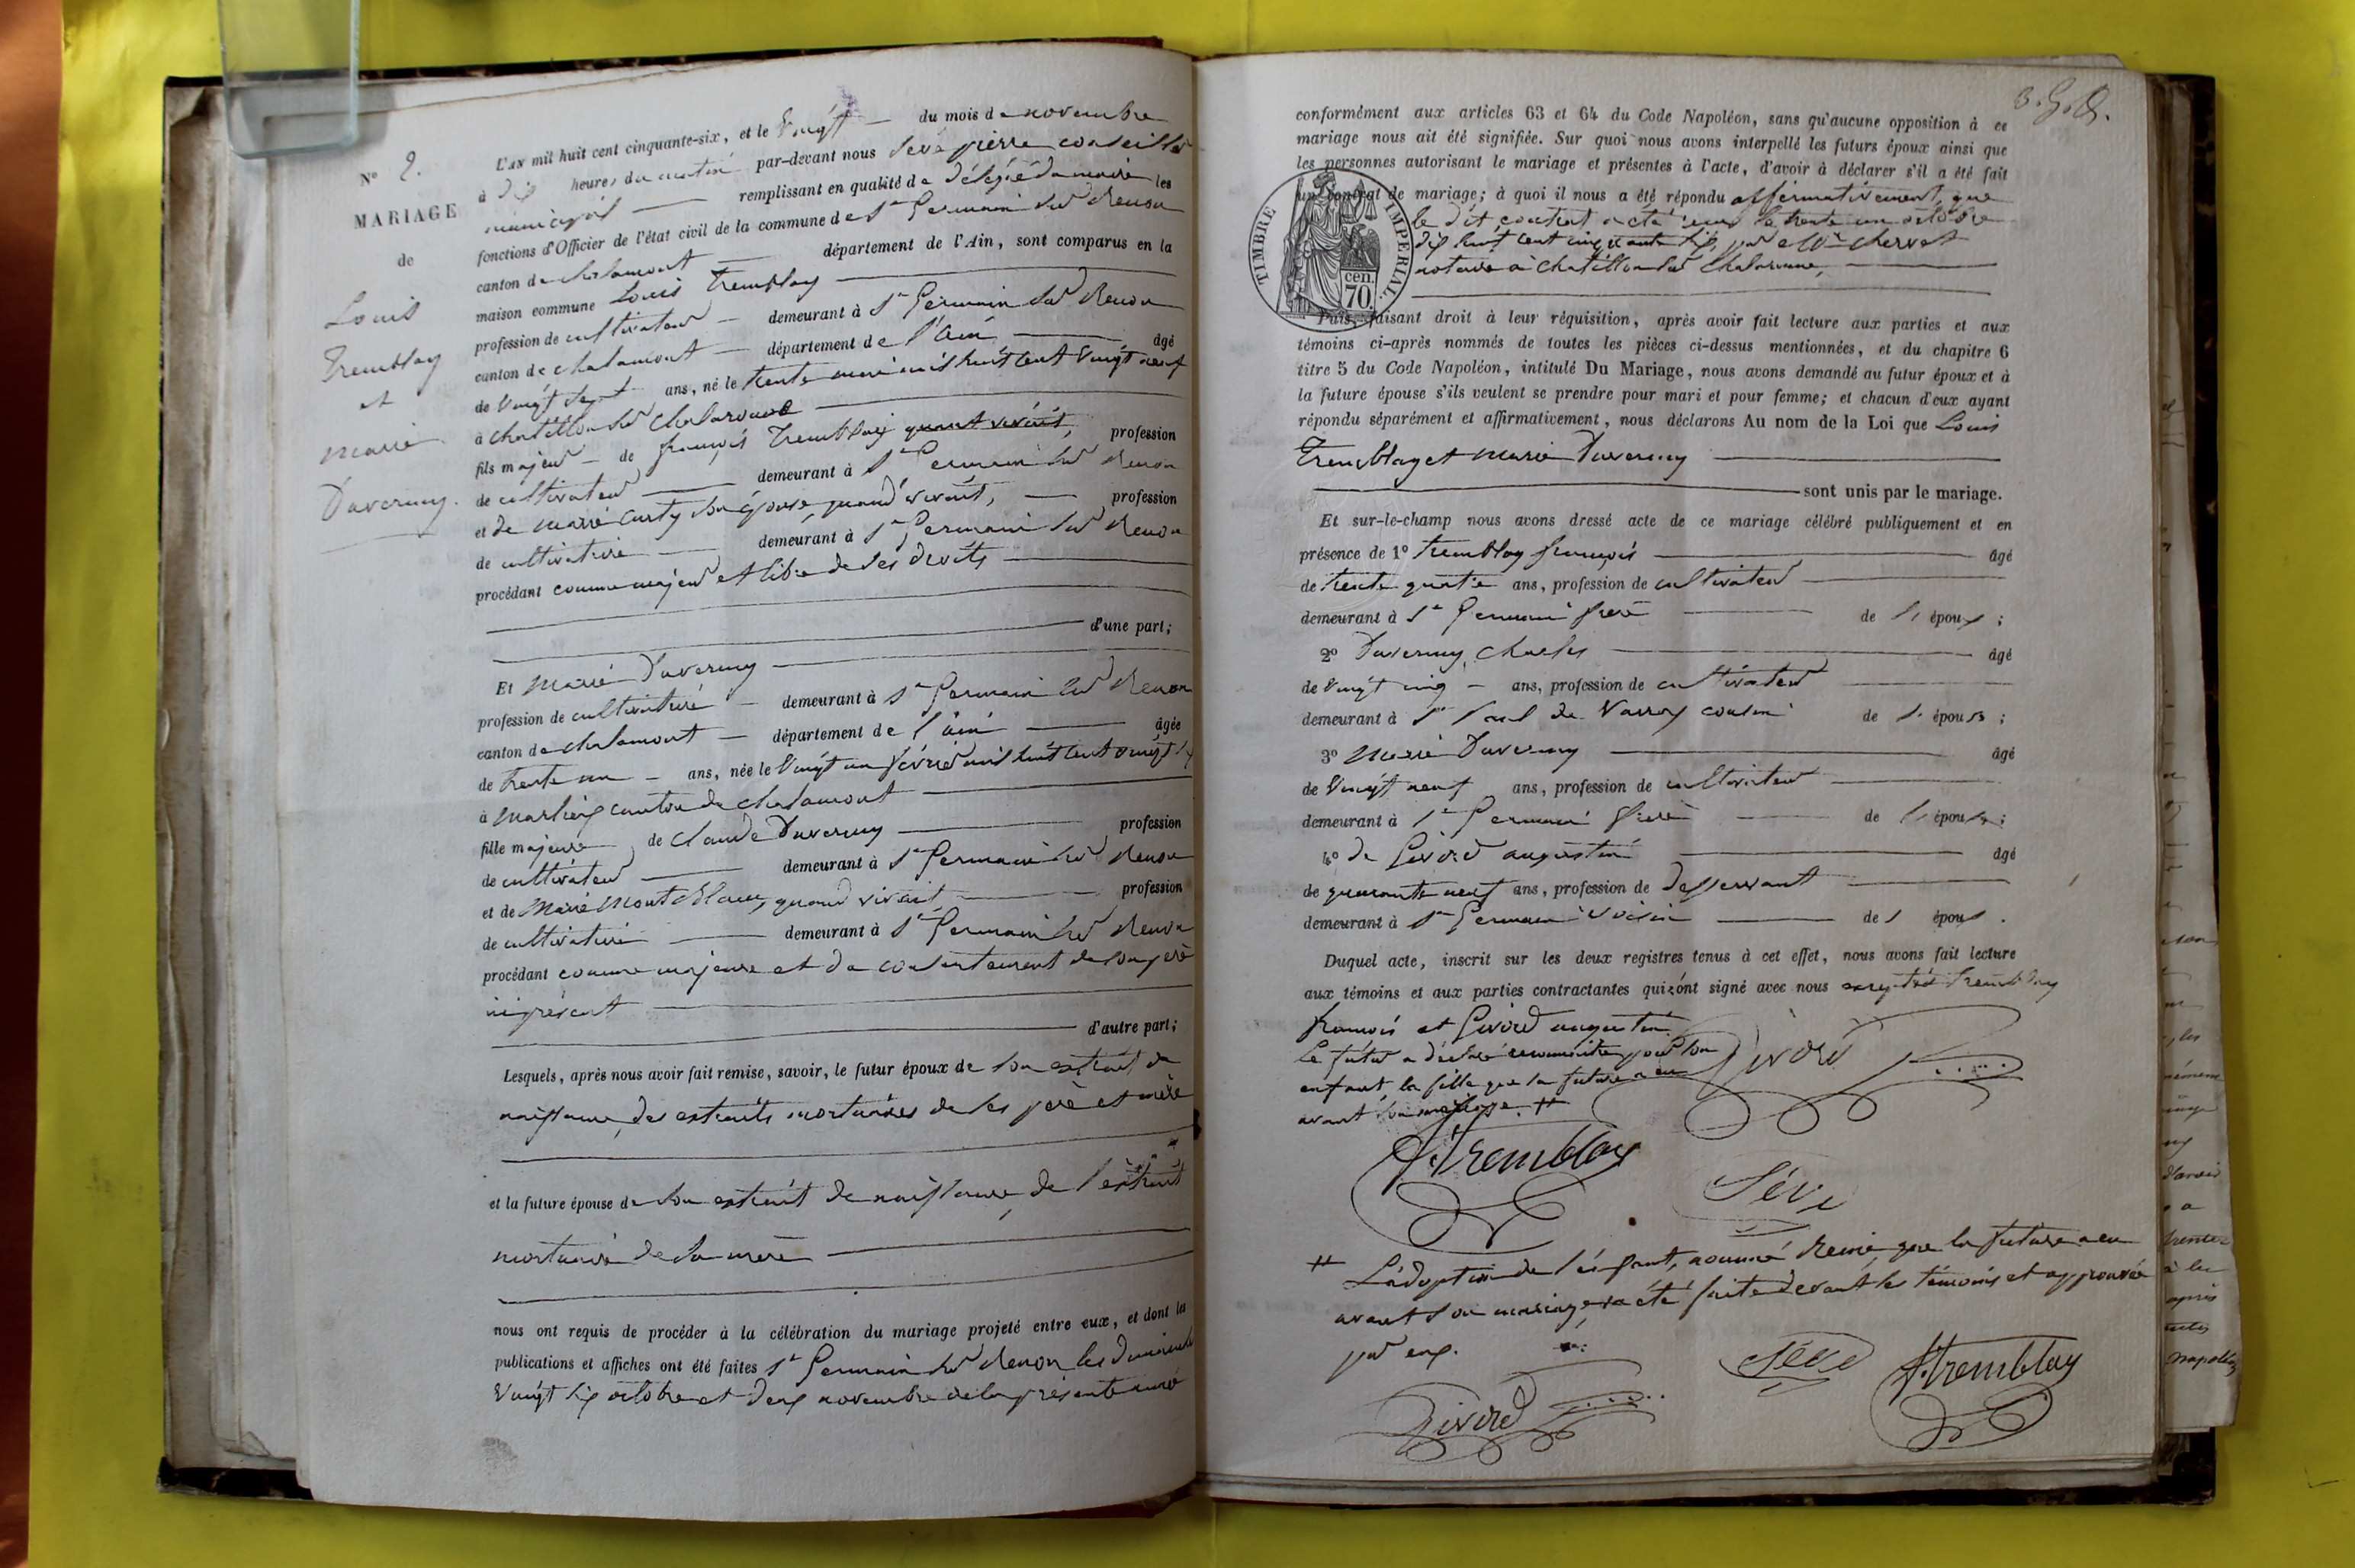 N° 2.
MARIAGE
de
Louis
Tremblay
et
Marie
Duverney.
L'AN mil huit cent cinquante-six, et le Vingt du mois de novembre
à dix heures du matin par-devant nous Sève pierre conseiller
municipal remplissant en qualité de délégué du maire les
fonctions d'Officier de l'état civil de la commune de St Germain sur Renon
canton de chalamont département de l'Ain, sont comparus en la
maison commune Louis Tremblay
profession de cultivateur demeurant à St Germain sur Renon
canton de chalamont département de l'Ain âgé
de Vingt sept ans, né le trente mars mil huit cent Vingt neuf
à chatillon sur chalaronne
fils majeur de françois Tremblay quant vivait, profession
de cultivateur demeurant à St Germain sur Renon
et de Marie Curty son épouse, quand vivait, profession
de cultivatrice demeurant à St Germain sur Renon
procédant comme majeur et libre de ses droits
d'une part;
Et Marie Duverney
profession de cultivatrice demeurant à St Germain sur Renon
canton de chalamont département de l'ain âgée
de trente un ans, née le Vingt un février mil huit cent vingt
à Marlieux canton de chalamont
fille majeure de claude Duverney profession
de cultivateur demeurant à St Germain sur Renon
et de Marie Mont Blanc, quand vivait, profession
de cultivatrice demeurant à St Germain sur Renon
procédant comme majeure et de consentement de son père
ici présent
d'autre part;
Lesquels, après nous avoir fait remise, savoir, le futur époux de son extrait de
naissance, des extraits mortuaires de ses père et mère
et la future épouse de son extrait de naissance, de l'extrait
mortuaire de sa mère
nous ont requis de procéder à la célébration du mariage projeté entre eux, et dont la
publications et affiches ont été faites St Germain sur Renon les dimanches
Vingt six octobre et deux novembre de la présente année
conformément aux articles 63 et 64 du Code Napoléon, sans qu'aucune opposition à ce
mariage nous ait été signifiée. Sur quoi nous avons interpellé les futurs époux ainsi que
les personnes autorisant le mariage et présentes à l'acte, d'avoir à déclarer s'il a été fait
un contrat de mariage; à quoi il nous a été répondu affirmativement, que
le dit contrat a été reçu le trente un octobre
dix huit cent cinquante six, par Me chervet
notaire à chatillon sur chalaronne,
TIMBRE IMPERIAL.
cen.
70.
Puis, faisant droit à leur réquisition, après avoir fait lecture aux parties et aux
témoins ci-après nommés de toutes les pièces ci-dessus mentionnées, et du chapitre 6
titre 5 du Code Napoléon, intitulé Du Mariage, nous avons demandé au futur époux et à
la future épouse s'ils veulent se prendre pour mari et pour femme; et chacun d'eux ayant
répondu séparément et affirmativement, nous déclarons Au nom de la Loi que Louis
Tremblay et Marie Duverney
sont unis par le mariage.
Et sur-le-champ nous avons dressé acte de ce mariage célébré publiquement et en
présence de 1° Tremblay françois âgé
de trente quatre ans, profession de cultivateur
demeurant à St Germain frère de l' époux ;
2° Duverney, charles âgé
de Vingt cinq ans, profession de cultivateur
demeurant à St Paul de Varax cousin de l' épouse ;
3° Marie Duverney âgé
de Vingt neuf ans, profession de cultivateur
demeurant à St Germain frère de l' épouse ;
4° de Givord augustin âgé
de quarante neuf ans, profession de desservant
demeurant à St Germain voisin de l époux .
Duquel acte, inscrit sur les deux registres tenus à cet effet, nous avons fait lecture
aux témoins et aux parties contractantes qui ont signé avec nous exepté Tremblay
françois et Givord augustin.
Le futur a déclaré reconnaître pour son
enfant, la fille que la future a eu
avant son mariage. #
Givord
f. Tremblay
Sève
# L'adoption de l'enfant, nommé Reine, que la future a eu
avant son mariage, a été faite devant les témoins et approuvée
par eux.
Sève
f. tremblay
Givord